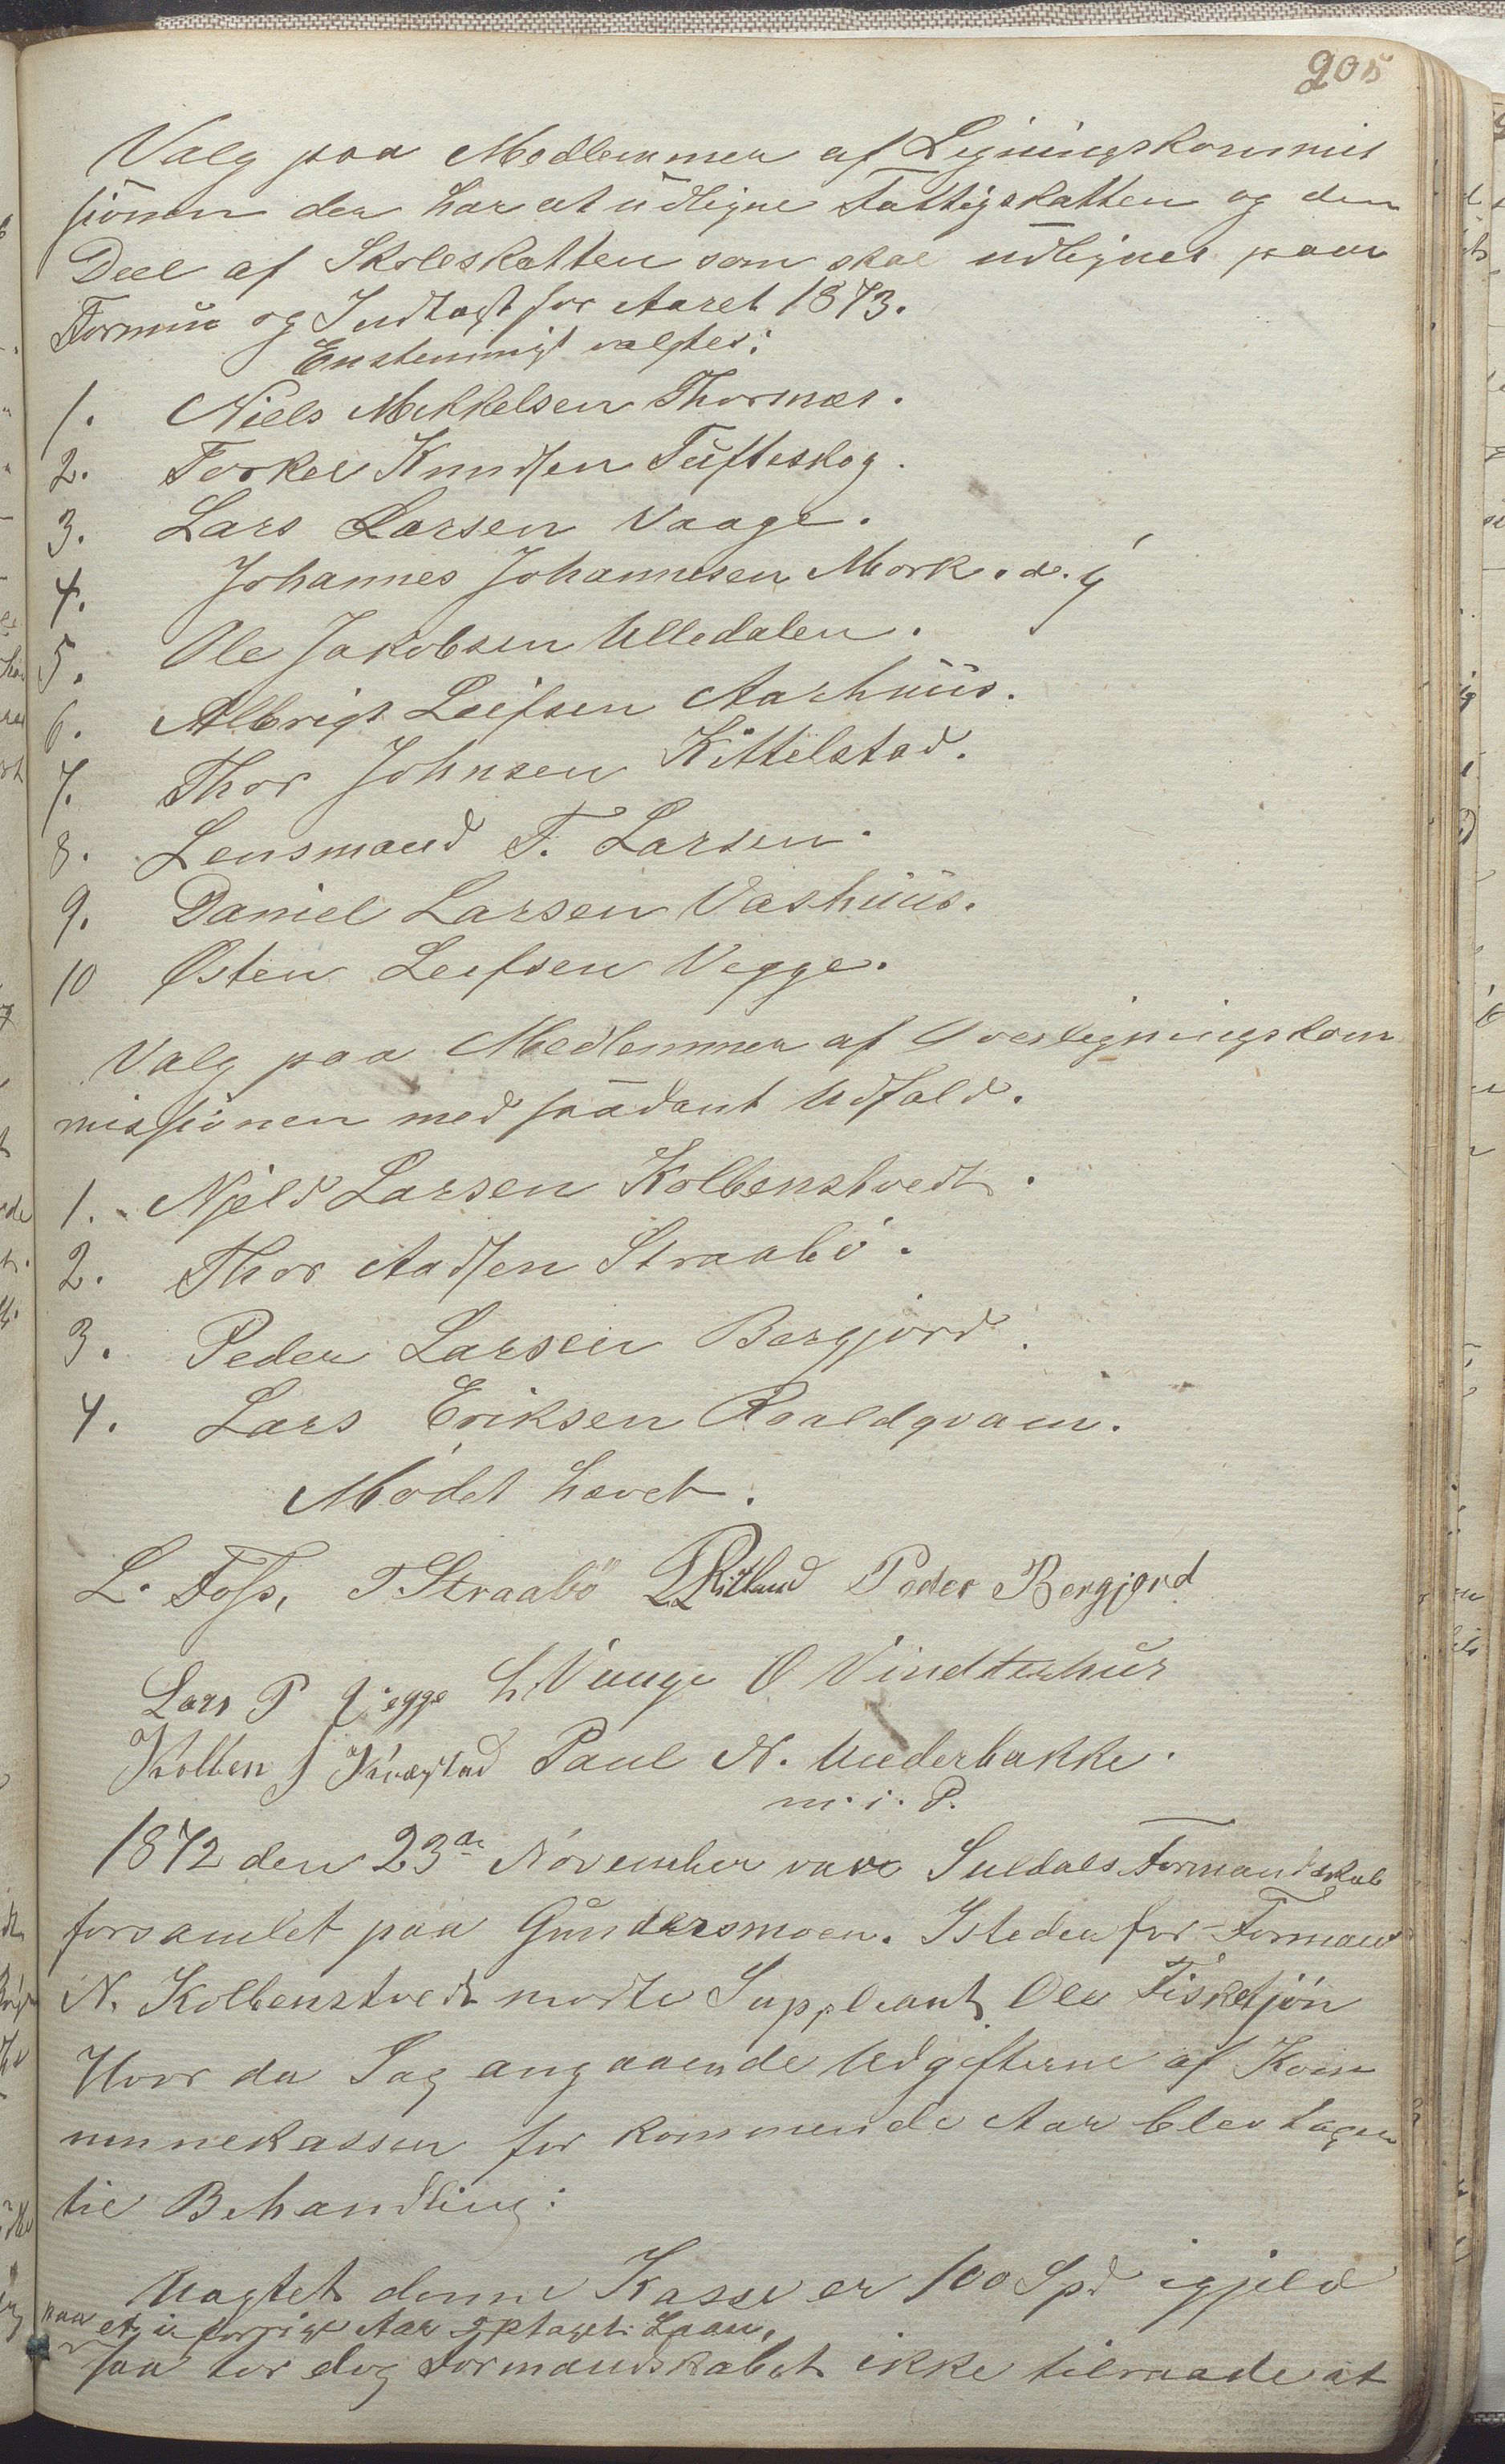 205
Valg paa Medlemmer af Ligningskommis
sionen der har at udligne Fattigskatten og den
Deel af Skoleskatten som skal udlignes paa
Formue og Indtægt for Aaret 1873.
Enstemmigt valgtes:
1. Niels Mikkelsen Thornæs.
2. Torkel Knudsen Tufteskog.
3. Lars Larsen Vaage.
4. Johannes Johannesen Mork. d. y
5. Ole Jakobsen Ulledalen.
6. Albrigt Leifsen Aarhuus.
7. Thor Johnsen Kittelstad.
8. Lensmand T. Larsen.
9. Daniel Larsen Vashuus.
10 Østen Leifsen Vegge.
Valg paa Medlemmer af Overligningskom
missionen med saadant Udfald.
1. Njeld Larsen Kolbenstvedt.
2. Thor Aadsen Straabø.
3. Peder Larsen Bergjord.
4. Lars Eriksen Roaldqvam.
Mødet hævet.
L. Foss, T. Straabö Ritland Peder Bergjord
Lars P Vegge L. Vaage O Vindterhus
Kolben J Kvæstad Paul N. Nederbakke.
m. i. P.
1872 den 23de November var Suldals Formandskab
forsamlet paa Gundersmoen. Istedenfor Formand
N. Kolbenstvedt mødte Suppleant Ole Fisketjön
Hvor da Sag angaaende Udgifterne af Kom
munekassen for kommende Aar blev tagen
til Behandling:
Uagtet denne Kasse er 100 Spd igjeld
paa et i forrige Aar optaget Laan,
saa tør dog Formandskabet ikke tilraade at